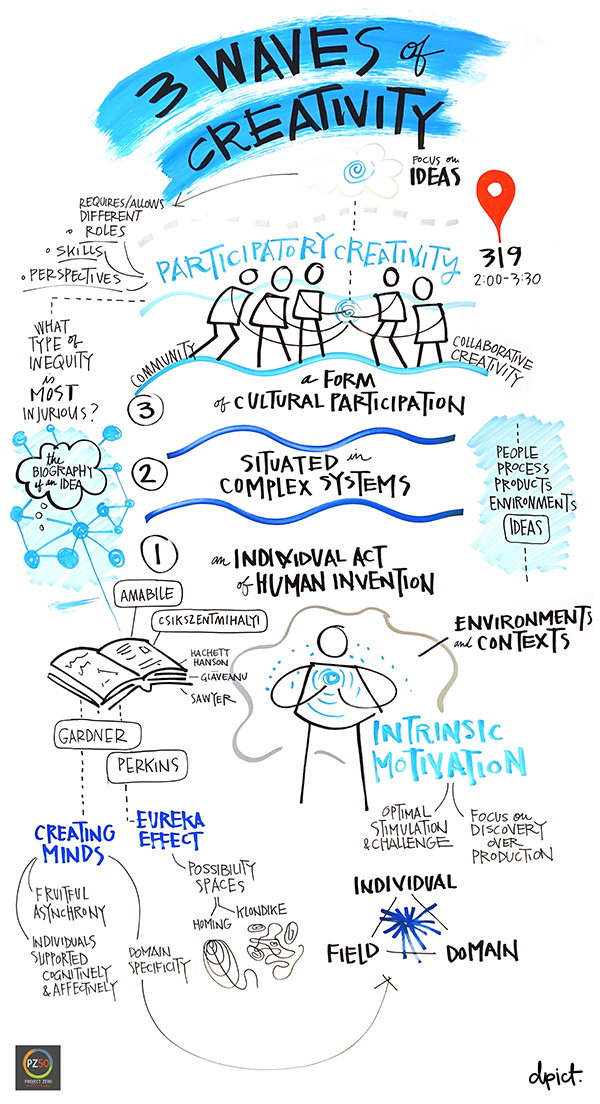 3 WAVES of
CREATIVITY
FOCUS on
IDEAS
REQUIRES/ALLOWS
DIFFERENT
° ROLES
° SKILLS
° PERSPECTIVES
319
2:00-3:30
PARTICIPATORY CREATIVITY
COMMUNITY
COLLABORATIVE
CREATIVITY
WHAT
TYPE of
INEQUITY
is
MOST
INJURIOUS?
3
a FORM
of CULTURAL PARTICIPATION
the
BIOGRAPHY
of an IDEA
2
SITUATED in
COMPLEX SYSTEMS
PEOPLE
PROCESS
PRODUCTS
ENVIRONMENTS
IDEAS
1
an INDIVIDUAL ACT
of HUMAN INVENTION
AMABILE
CSIKSZENTMIHALYI
HACHETT
HANSON
GLĂVEANU
SAWYER
GARDNER
PERKINS
ENVIRONMENTS
and CONTEXTS
INTRINSIC
MOTIVATION
OPTIMAL
STIMULATION
& CHALLENGE
FOCUS on
DISCOVERY
OVER
PRODUCTION
CREATING
MINDS
EUREKA
EFFECT
FRUITFUL
ASYNCHRONY
INDIVIDUALS
SUPPORTED
COGNITIVELY
& AFFECTIVELY
DOMAIN
SPECIFICITY
POSSIBILITY
SPACES
HOMING
KLONDIKE
INDIVIDUAL
FIELD
DOMAIN
PZ50
PROJECT ZERO
dpict.